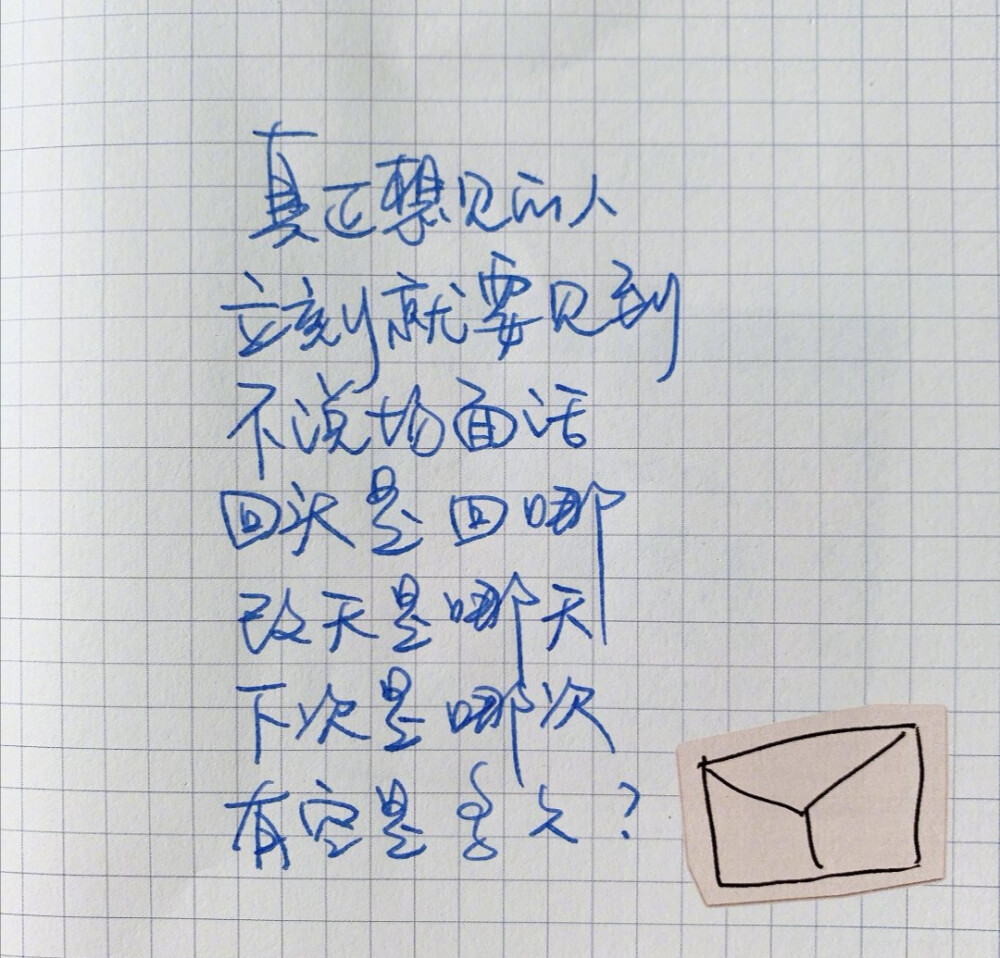 真正想见的人
立刻就要见到
不说场面话
回头是回哪
改天是哪天
下次是哪次
有空是多久?